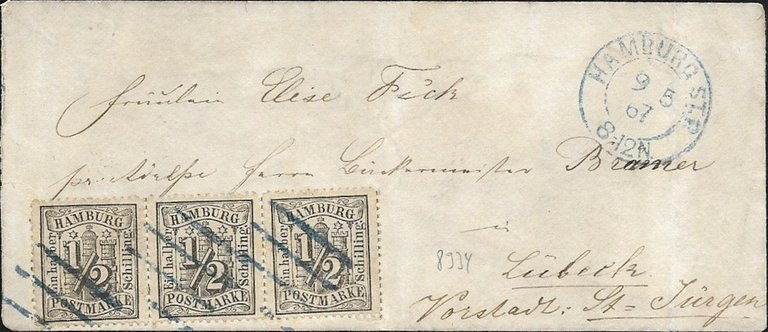 HAMBURG ST.P.
9 5
67
8-12N
Fräulein Elise Fick
Herrn Bäckermeister Bramer
in
8334
Lübeck
Vorstadt: St= Jürgen
HAMBURG
Ein halber
1/2
Schilling
POSTMARKE
HAMBURG
Ein halber
1/2
Schilling
POSTMARKE
HAMBURG
Ein halber
1/2
Schilling
POSTMARKE